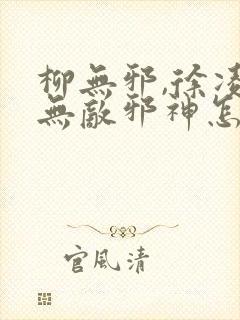 柳無邪,徐凌
無敵邪神怎
官風清